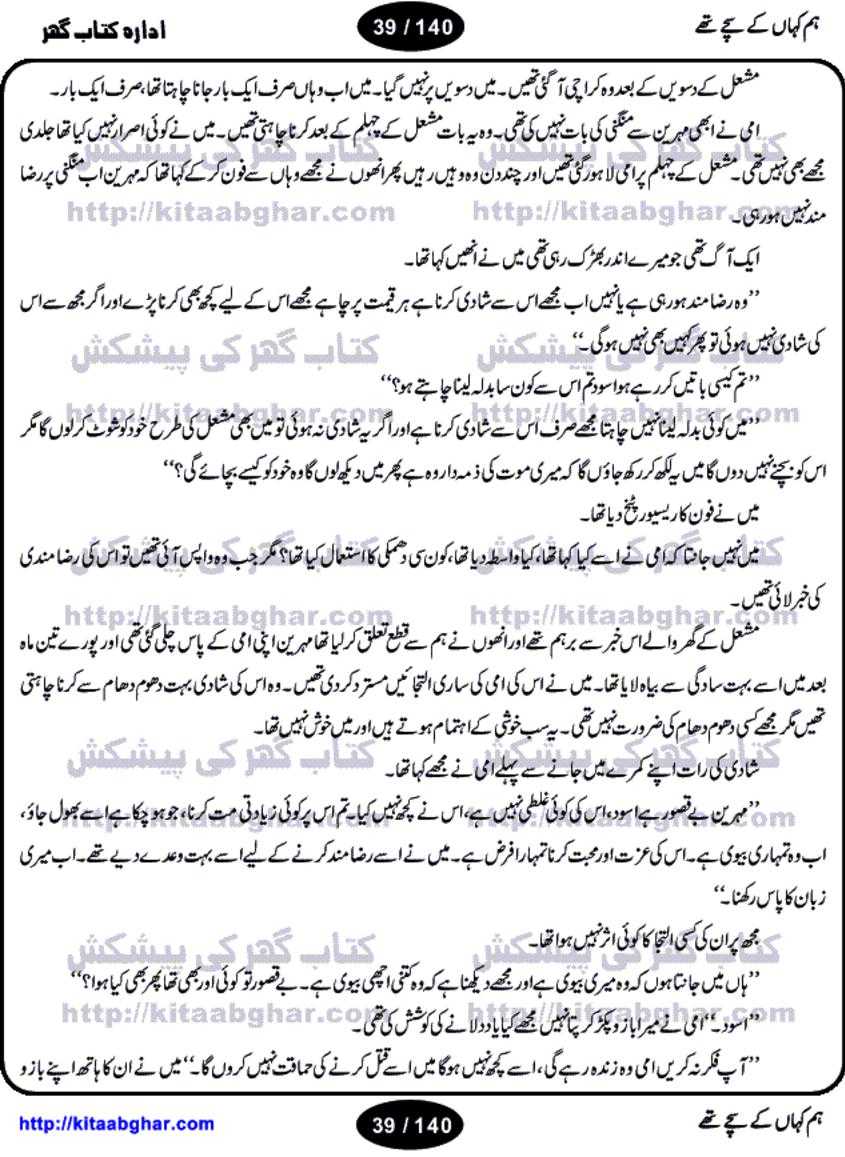 ہم کہاں کے سچے تھے
39 / 140
ادارہ کتاب گھر
مشعل کے دسویں کے بعد وہ کراچی آ گئی تھیں۔ میں دسویں پر نہیں گیا۔ میں اب وہاں صرف ایک بار جانا چاہتا تھا، صرف ایک بار۔
امی نے ابھی مہرین سے منگنی کی بات نہیں کی تھی۔ وہ یہ بات مشعل کے چہلم کے بعد کرنا چاہتی تھیں۔ میں نے کوئی اصرار نہیں کیا تھا جلدی
مجھے بھی نہیں تھی۔ مشعل کے چہلم پر امی لاہور گئی تھیں اور چند دن وہ وہیں رہیں پھر انھوں نے مجھے وہاں سے فون کر کے کہا تھا کہ مہرین اب منگنی پر رضا
مند نہیں ہو رہی۔
ایک آگ تھی جو میرے اندر بھڑک رہی تھی میں نے انھیں کہا تھا۔
’’وہ رضامند ہو رہی ہے یا نہیں اب مجھے اس سے شادی کرنا ہے ہر قیمت پر چاہے مجھے اس کے لیے کچھ بھی کرنا پڑے اور اگر مجھ سے اس
کی شادی نہیں ہوئی تو پھر کہیں بھی نہیں ہوگی۔‘‘
’’تم کیسی باتیں کر رہے ہو اسود تم اس سے کون سا بدلہ لینا چاہتے ہو؟‘‘
’’میں کوئی بدلہ لینا نہیں چاہتا مجھے صرف اس سے شادی کرنا ہے اور اگر یہ شادی نہ ہوئی تو میں بھی مشعل کی طرح خود کو شوٹ کر لوں گا مگر
اس کو بچنے نہیں دوں گا میں یہ لکھ کر رکھ جاؤں گا کہ میری موت کی ذمہ دار وہ ہے پھر میں دیکھ لوں گا وہ خود کو کیسے بچائے گی؟‘‘
میں نے فون کا ریسیور پٹخ دیا تھا۔
میں نہیں جانتا کہ امی نے اسے کیا کہا تھا، کیا واسطہ دیا تھا، کون سی دھمکی کا استعمال کیا تھا؟ مگر جب وہ واپس آئی تھیں تو اس کی رضا مندی
کی خبر لائی تھیں۔
مشعل کے گھر والے اس خبر سے برہم تھے اور انھوں نے ہم سے قطع تعلق کر لیا تھا مہرین اپنی امی کے پاس چلی گئی تھی اور پورے تین ماہ
بعد میں اسے بہت سادگی سے بیاہ لایا تھا۔ میں نے اس کی امی کی ساری التجائیں مسترد کر دی تھیں۔ وہ اس کی شادی بہت دھوم دھام سے کرنا چاہتی
تھیں مگر مجھے کسی دھوم دھام کی ضرورت نہیں تھی۔ یہ سب خوشی کے اہتمام ہوتے ہیں اور میں خوش نہیں تھا۔
شادی کی رات اپنے کمرے میں جانے سے پہلے امی نے مجھے کہا تھا۔
’’مہرین بے قصور ہے اسود، اس کی کوئی غلطی نہیں ہے، اس نے کچھ نہیں کیا۔ تم اس پر کوئی زیادتی مت کرنا، جو ہو چکا ہے اسے بھول جاؤ،
اب وہ تمہاری بیوی ہے۔ اس کی عزت اور محبت کرنا تمہارا فرض ہے۔ میں نے اسے رضامند کرنے کے لیے اسے بہت وعدے دیے تھے۔ اب میری
زبان کا پاس رکھنا۔‘‘
مجھ پر ان کی کسی التجا کا کوئی اثر نہیں ہوا تھا۔
’’ہاں میں جانتا ہوں کہ وہ میری بیوی ہے اور مجھے دیکھنا ہے کہ وہ کتنی اچھی بیوی ہے۔ بے قصور تو کوئی اور بھی تھا پھر بھی کیا ہوا؟‘‘
’’اسود۔‘‘ امی نے میرا بازو پکڑ کر پتا نہیں مجھے کیا یاد دلانے کی کوشش کی تھی۔
’’آپ فکر نہ کریں امی وہ زندہ رہے گی، اسے کچھ نہیں ہوگا میں اسے قتل کرنے کی حماقت نہیں کروں گا۔‘‘ میں نے ان کا ہاتھ اپنے بازو
کتاب گھر کی پیشکش
http://kitaabghar.com
ہم کہاں کے سچے تھے
39 / 140
http://kitaabghar.com